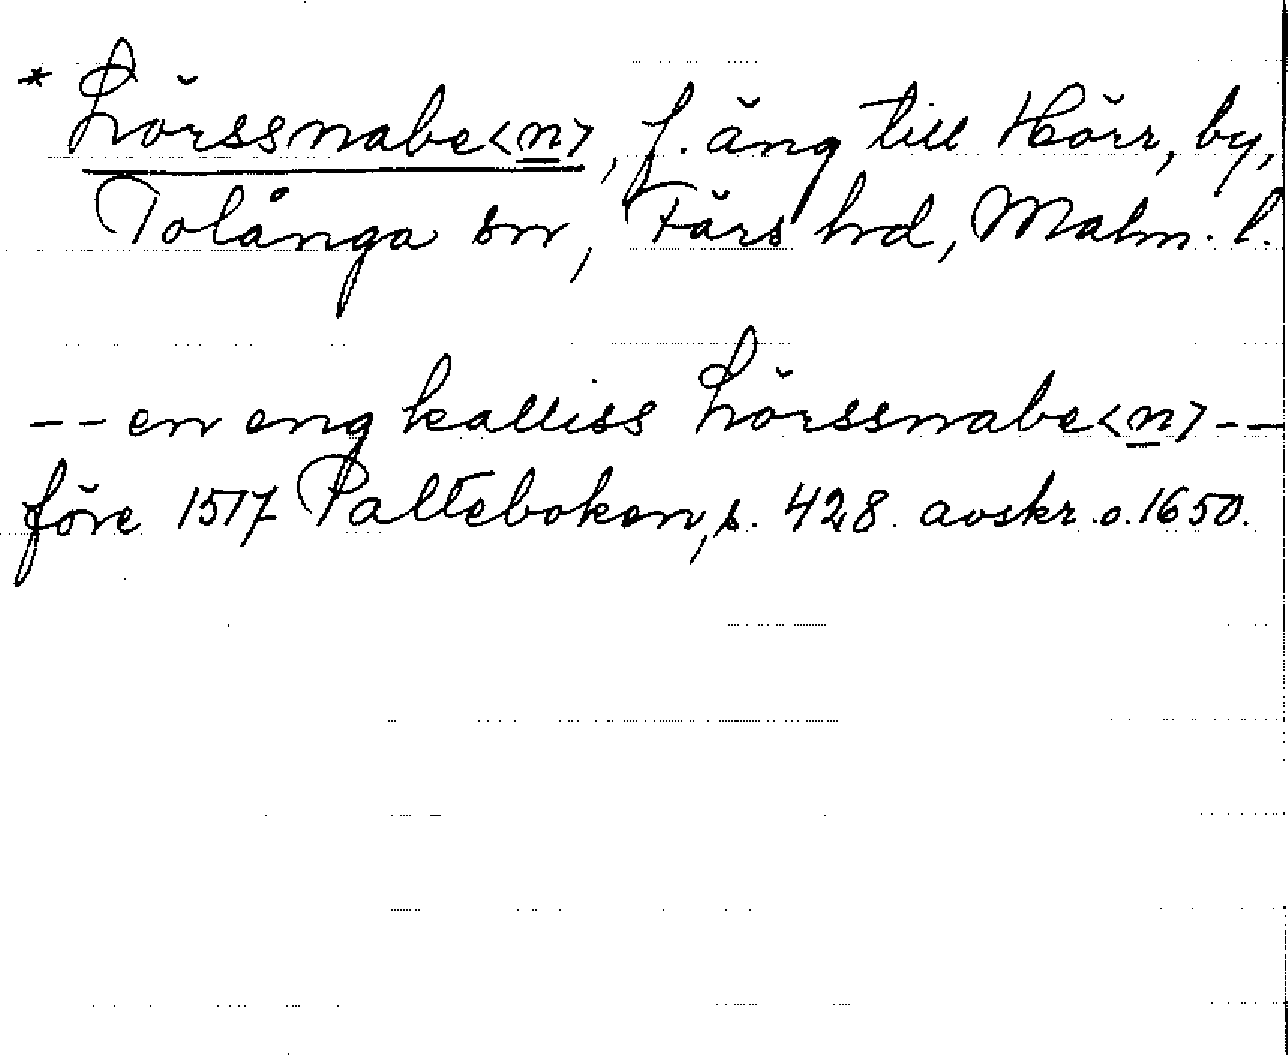 * Lörssnabe<n>, f. äng till Hörr, by,
Tolånga sn, Färs hd, Malm. l.
-- en eng kalliss Lörssnabe<n> --
före 1517 Palteboken, s. 428. avskr. o. 1650.